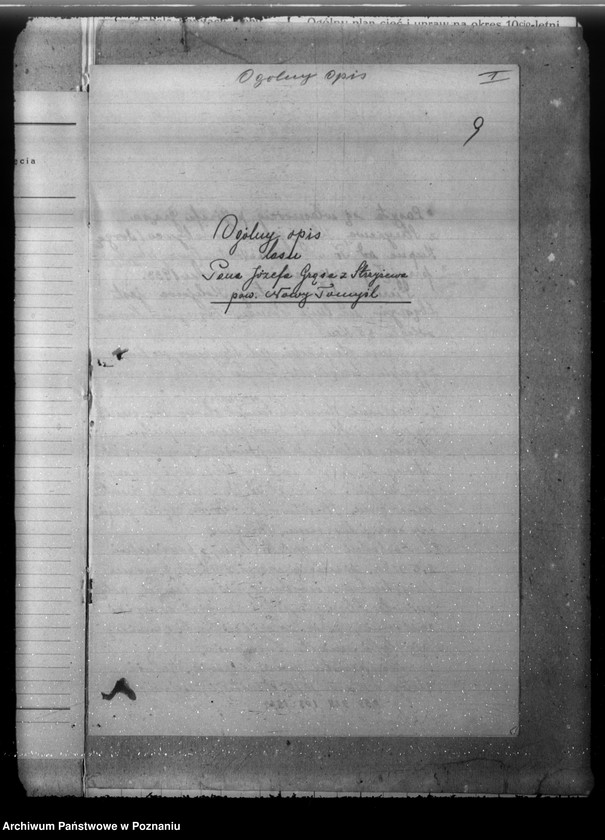 Ogólny plan cięć i upraw na okres 10-cio letni
Ogolny opis I
9
cięcia
Ogólny opis
lasu
Pana Józefa Grysa z Strzyżewa
pow. Nowy Tomyśl
Archiwum Państwowe w Poznaniu